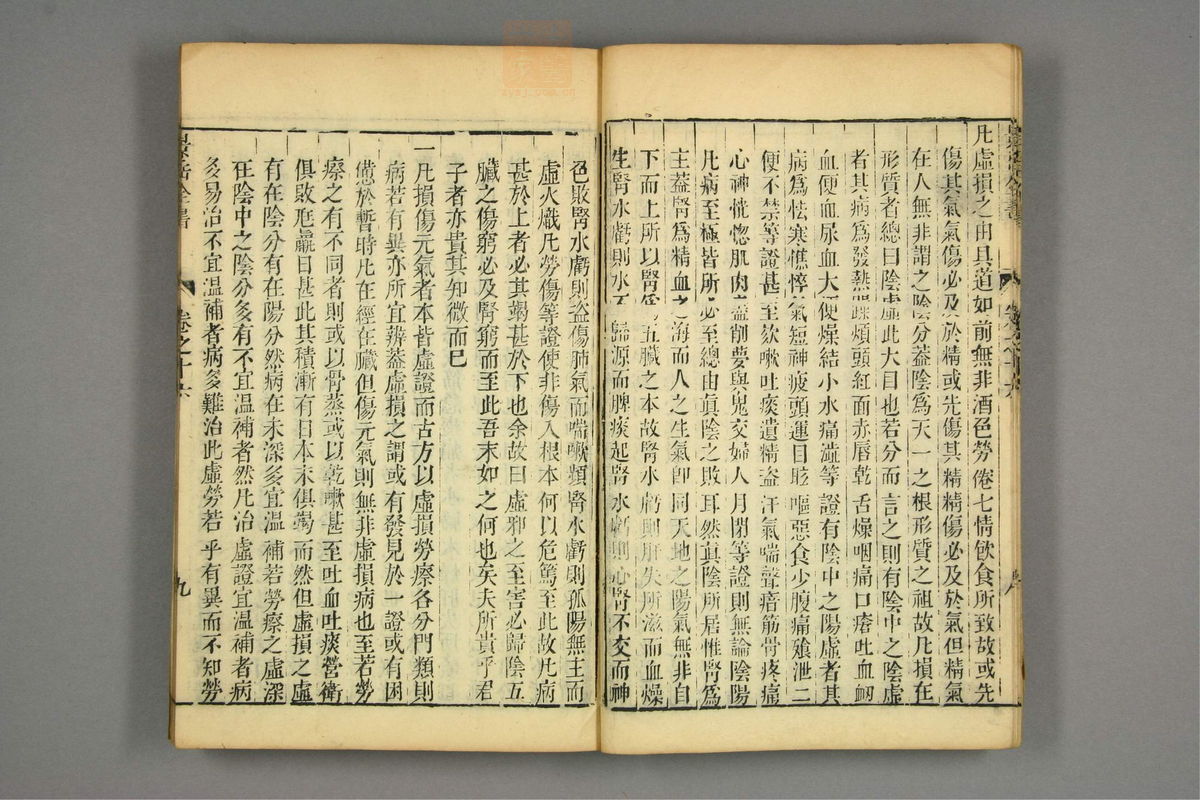 凡虛損之由具道如前無非酒色勞倦七情飲食所致故或先
傷其氣氣傷必及於精或先傷其精精傷必及於氣但精氣
在人無非謂之陰分蓋陰爲天一之根形質之祖故凡損在
形質者總曰陰虛此大目也若分而言之則有陰中之陰虛
者其病爲發熱躁煩頭紅面赤唇乾舌燥咽痛口瘡吐血衂
血便血尿血大便燥結小水痛澁等證有陰中之陽虛者其
病爲怯寒憔悴氣短神疲頭運目眩嘔惡食少腹痛飱泄二
便不禁等證甚至欬嗽吐痰遺精盗汗氣喘聲瘖筋骨疼痛
心神恍惚肌肉盡削夢與鬼交婦人月閉等證則無論陰陽
凡病至極皆所必至總由眞陰之敗耳然眞陰所居惟腎爲
主蓋腎爲精血之海而人之生氣卽同天地之陽氣無非自
下而上所以腎爲五臟之本故腎水虧則肝失所滋而血燥
生腎水虧則水不歸源而脾痰起腎水虧則心腎不交而神
色敗腎水虧則盗傷肺氣而喘嗽頻腎水虧則孤陽無主而
虛火熾凡勞傷等證使非傷入根本何以危篤至此故凡病
甚於上者必其竭甚於下也余故曰虛邪之至害必歸陰五
臟之傷窮必及腎窮而至此吾末如之何也矣夫所貴乎君
子者亦貴其知微而已
一凡損傷元氣者本皆虛證而古方以虛損勞瘵各分門類則
病若有異亦所宜辨蓋虛損之謂或有發見於一證或有困
憊於暫時凡在經在臟但傷元氣則無非虛損病也至若勞
瘵之有不同者則或以骨蒸或以乾嗽甚至吐血吐痰營衛
俱敗尫羸日甚此其積漸有日本末俱竭而然但虛損之虛
有在陰分有在陽分然病在未深多宜溫補若勞瘵之虛深
在陰中之陰分多有不宜溫補者然凡治虛證宜溫補者病
多易治不宜溫補者病多難治此虛勞若乎有異而不知勞
景岳全書
卷之十六
九